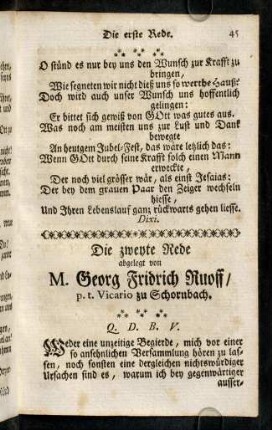 Die erste Rede. 45
O stünd es nur bey uns den Wunsch zur Krafft zu
bringen,
Wie segneten wir nicht dieß uns so werthe Hauß?
Doch wird auch unser Wunsch uns hoffentlich
gelingen:
Er bittet sich gewiß von GOtt was gutes aus.
Was noch am meisten uns zur Lust und Danck
bewegte
An heutgem Jubel-Fest, das wäre letzlich das:
Wenn GOtt durch seine Krafft solch einen Mann
erweckte,
Der noch viel grösser wär, als einst Jesaias:
Der bey dem grauen Paar den Zeiger wechseln
hiesse,
Und Ihren Lebenslauf ganz rückwarts gehen liesse.
Dixi.
Die zweyte Rede
abgelegt von
M. Georg Fridrich Ruoff/
p. t. Vicario zu Schornbach.
Q. D. B. V.
Weder eine unzeitige Begierde, mich vor einer
so ansehnlichen Versammlung hören zu las-
sen, noch sonsten eine dergleichen nichtswürdige
Ursachen sind es, warum ich bey gegenwärtiger
ausser-